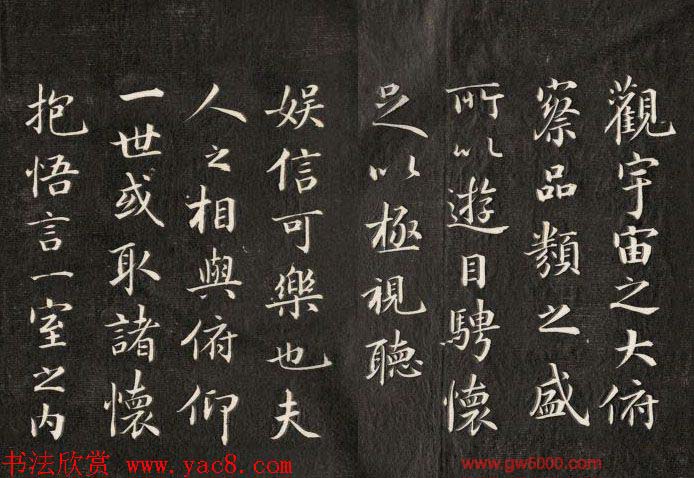 觀宇宙之大俯
察品類之盛
所以遊目騁懷
足以極視聽
娛信可樂也夫
人之相與俯仰
一世或取諸懷
抱悟言一室之内
书法欣赏 www.yac8.com
www.gw5000.com